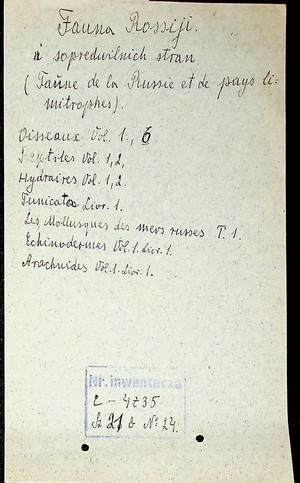 Fauna Rossiji.
i sopredwilnich stran
(Faune de la Russie et de pays li-
mitrophes).
Oisseaux Vol. 1., 6
Reptiles Vol. 1,2,
Hydraires Vol. 1,2.
Tunicata Livr. 1.
Les Mollusques des mers russes T. 1.
Echinodermes Vol. 1. Livr. 1.
Arachnides Vol. 1. Livr. 1.
Nr. inwentarza
L-4735
Sz 21 b No 24.